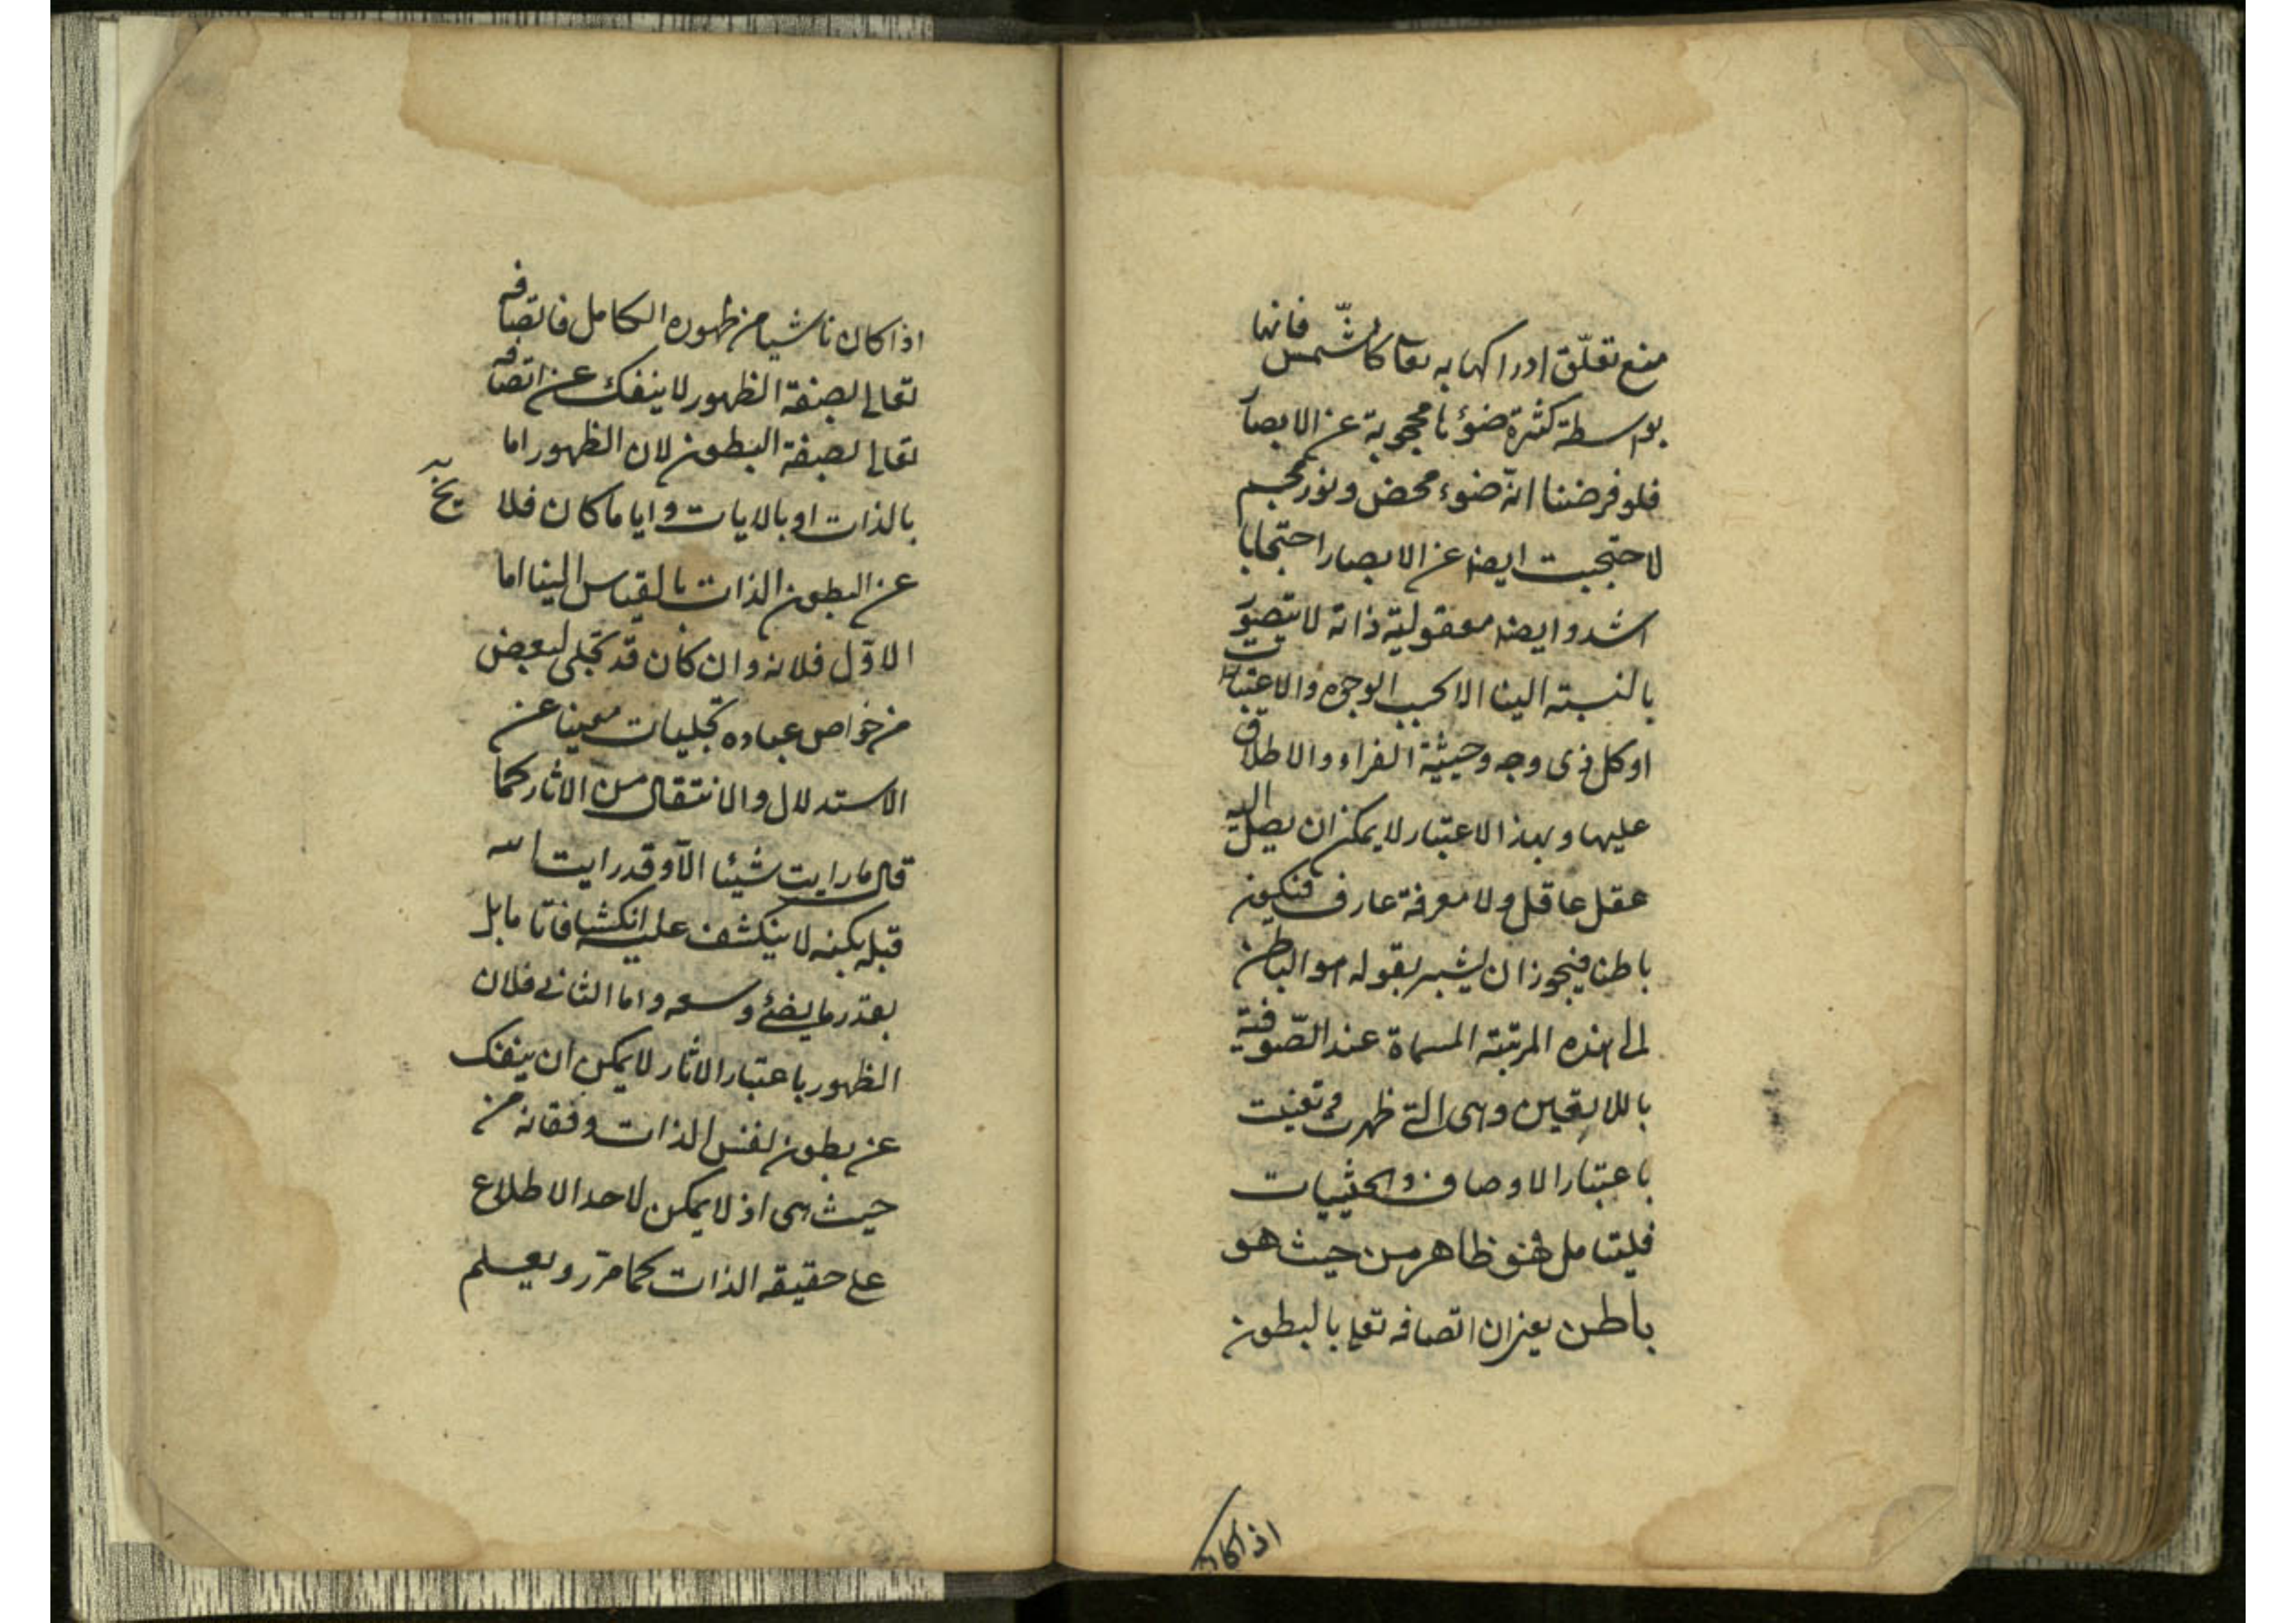 منع تعلّق ادراكها به تعا كالشّمس فانها
بواسطة كثرة ضوئها محجوبة عن الابصار
فلو فرضنا انه ضوء محض ونور مجسم
لاحتجبت ايضا عن الابصار احتجابا
اشد وايضا معقولية ذاته لا تتصور
بالنسبة الينا الا بحسب الوجوه والاعتبارات
او كل ذى وجه وحيثية الفراء والاطلاق
عليها وبهذا الاعتبار لا يمكن ان يصل اليه
عقل عاقل ولا معرفة عارف فتكون
باطنا فيجوز ان يشير بقوله هو الباطن
الى هذه المرتبة المسماة عند الصّوفية
باللاتعين وهى التى ظهرت وتعينت
باعتبار الاوصاف والحيثيات
فليتامل فهو ظاهر من حيث هو
باطن يعنى ان اتصافه تعالى بالبطون
اذا كان
اذا كان ناشيا من ظهوره الكامل فاتصافه
تعالى بصفة الظهور لا ينفك عن اتصافه
تعالى بصفة البطون لان الظهور اما
بالذات او بالايات وايا ما كان فلا يخ
عن البطون الذات بالقياس الينا اما
الاوّل فلانه وان كان قد تجلى لبعض
من خواص عباده تجليات معينا عن
الاستدلال والانتقال من الاثار كما
قال ما رايت شيئا الا وقد رايت الله
قبله لكنه لا ينكشف عليه انكشافا تاما بل
بقدر ما يضئ وسعه واما الثانى فلان
الظهور باعتبار الاثار لا يمكن ان ينفك
عن بطون لنفس الذات وفقانه من
حيث هى اذ لا يمكن لاحد الاطلاع
على حقيقه الذات كما مرّ ويعلم